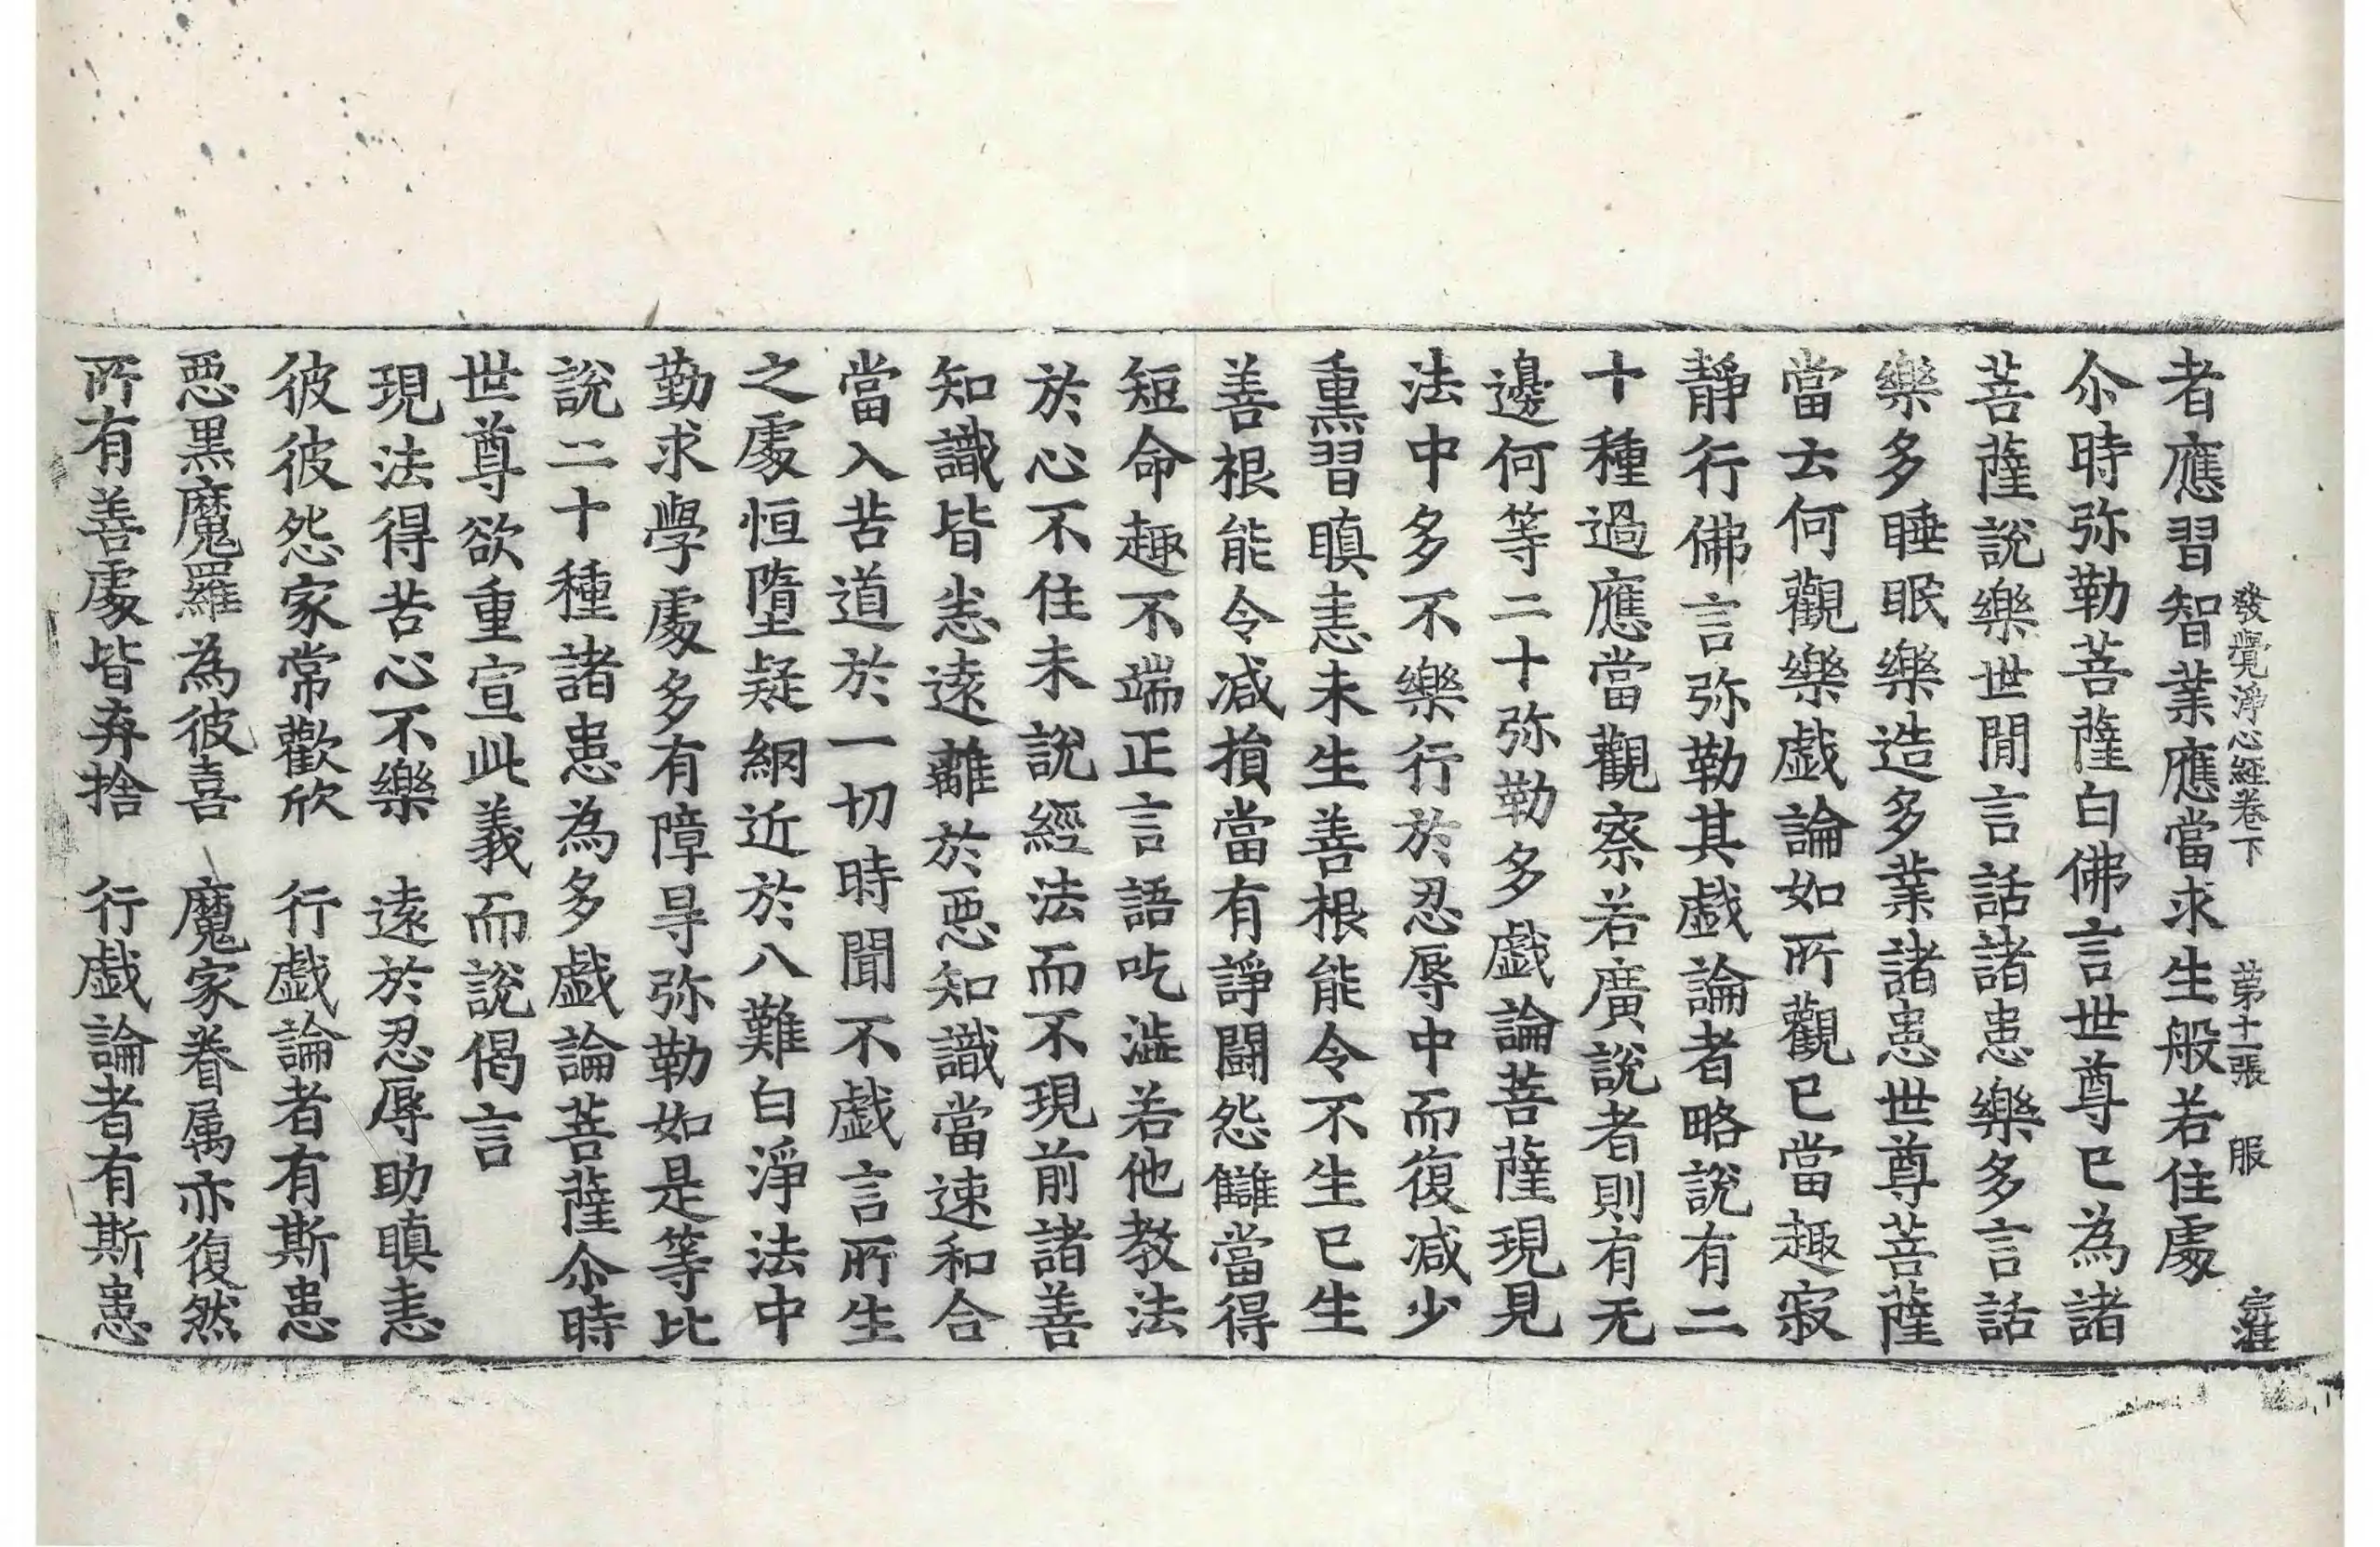 發覺淨心經卷下　第十二張　服
者應習智業應當求生般若住處
尒時弥勒菩薩白佛言世尊已為諸
菩薩說樂世閒言話諸患樂多言話
樂多睡眠樂造多業諸患世尊菩薩
當云何觀樂戱論如所觀已當趣寂
靜行佛言弥勒其戱論者略說有二
十種過應當觀察若廣說者則有无
邊何等二十弥勒多戱論菩薩現見
法中多不樂行於忍辱中而復減少
熏習瞋恚未生善根能令不生已生
善根能令減損當有諍鬪怨讎當得
短命趣不端正言語吃澁若他教法
於心不住未說經法而不現前諸善
知識皆悉遠離於惡知識當速和合
當入苦道於一切時聞不戱言所生
之處恒墮疑網近於八難白淨法中
勤求學處多有障㝵弥勒如是等比
說二十種諸患為多戱論菩薩尒時
世尊欲重宣此義而說偈言
現法得苦心不樂　遠於忍辱助瞋恚
彼彼怨家常歡欣　行戱論者有斯患
惡黑魔羅為彼喜　魔家眷属亦復然
所有善處皆弃捨　行戱論者有斯患